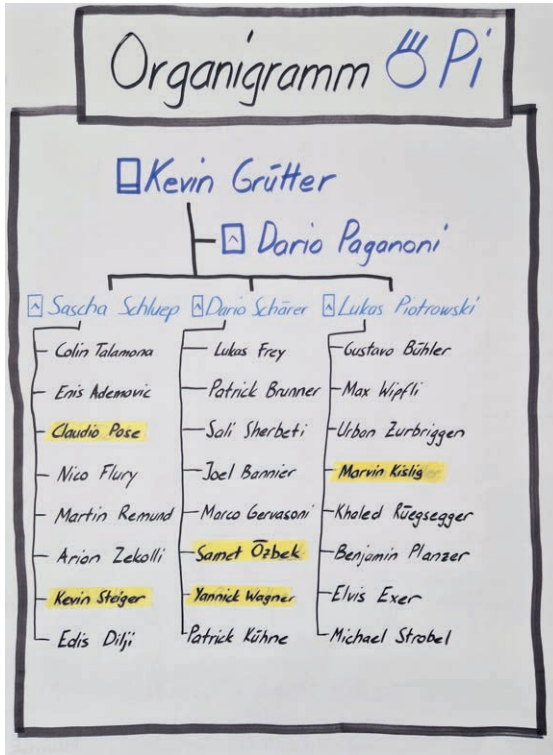 Organigramm Pi
Kevin Grütter
Dario Paganoni
Sascha Schluep
Dario Schärer
Lukas Piotrowski
Colin Talamona
Enis Ademovic
Claudio Pose
Nico Flury
Martin Remund
Arion Zekolli
Kevin Steiger
Edis Dilji
Lukas Frey
Patrick Brunner
Sali Sherbeti
Joel Bannier
Marco Gervasoni
Samet Özbek
Yannick Wagner
Patrick Kühne
Gustavo Bühler
Max Wipfli
Urban Zurbriggen
Marvin Kislig
Khaled Rüegsegger
Benjamin Planzer
Elvis Exer
Michael Strobel